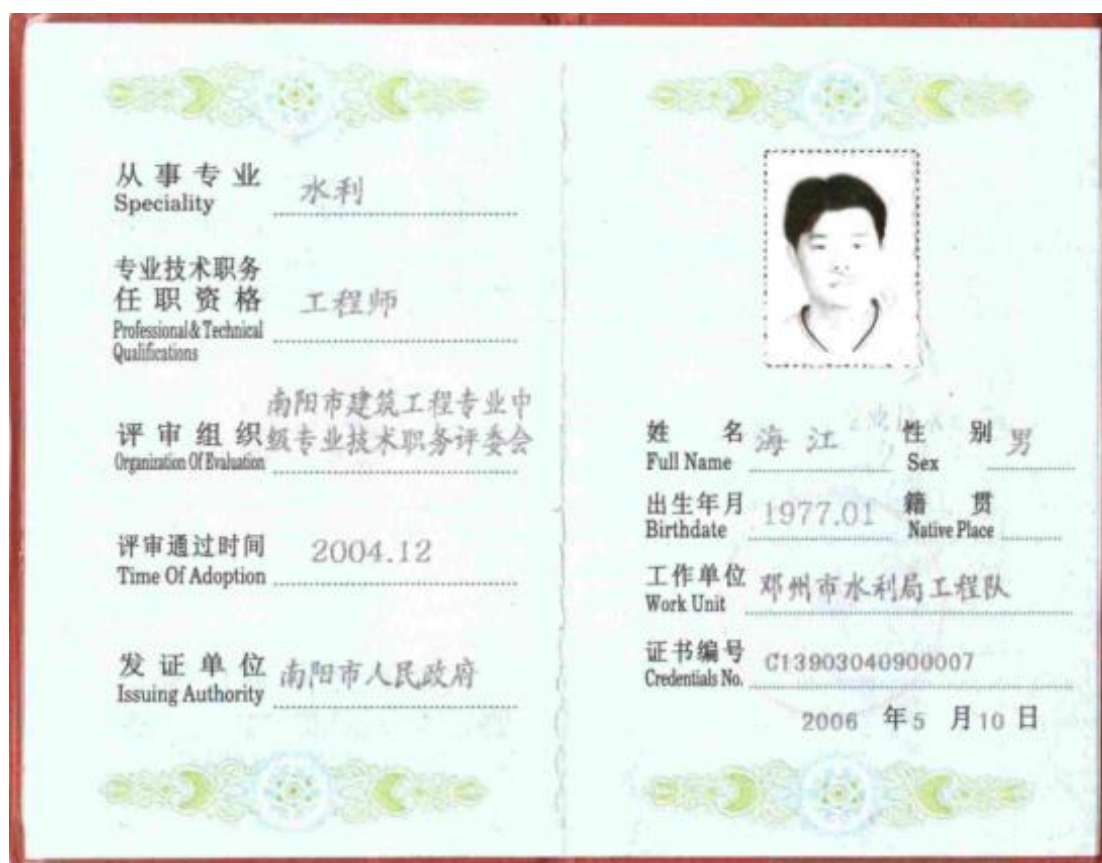 从事专业 水利
Speciality
专业技术职务
任职资格 工程师
Professional & Technical
Qualifications
南阳市建筑工程专业中
评审组织 级专业技术职务评委会
Organization Of Evaluation
评审通过时间 2004.12
Time Of Adoption
发证单位 南阳市人民政府
Issuing Authority
姓名 海江 性别 男
Full Name Sex
出生年月 1977.01 籍贯
Birthdate Native Place
工作单位 邓州市水利局工程队
Work Unit
证书编号 C13903040900007
Credentials No.
2006 年 5 月 10 日